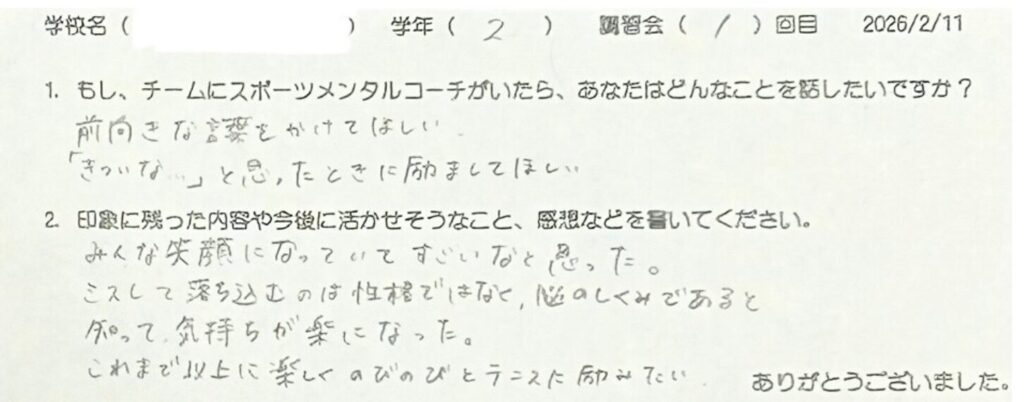 学校名（　　　　　　）　学年（　2　）　講習会（　1　）回目　2026/2/11
1. もし、チームにスポーツメンタルコーチがいたら、あなたはどんなことを話したいですか？
前向きな言葉をかけてほしい.
「きついな…」と思ったときに励ましてほしい
2. 印象に残った内容や今後に活かせそうなこと、感想などを書いてください。
みんな笑顔になっていてすごいなと思った。
ミスして落ち込むのは性格ではなく、脳のしくみであると
知って、気持ちが楽になった。
これまで以上に楽しくのびのびとテニスに励みたい.
ありがとうございました。